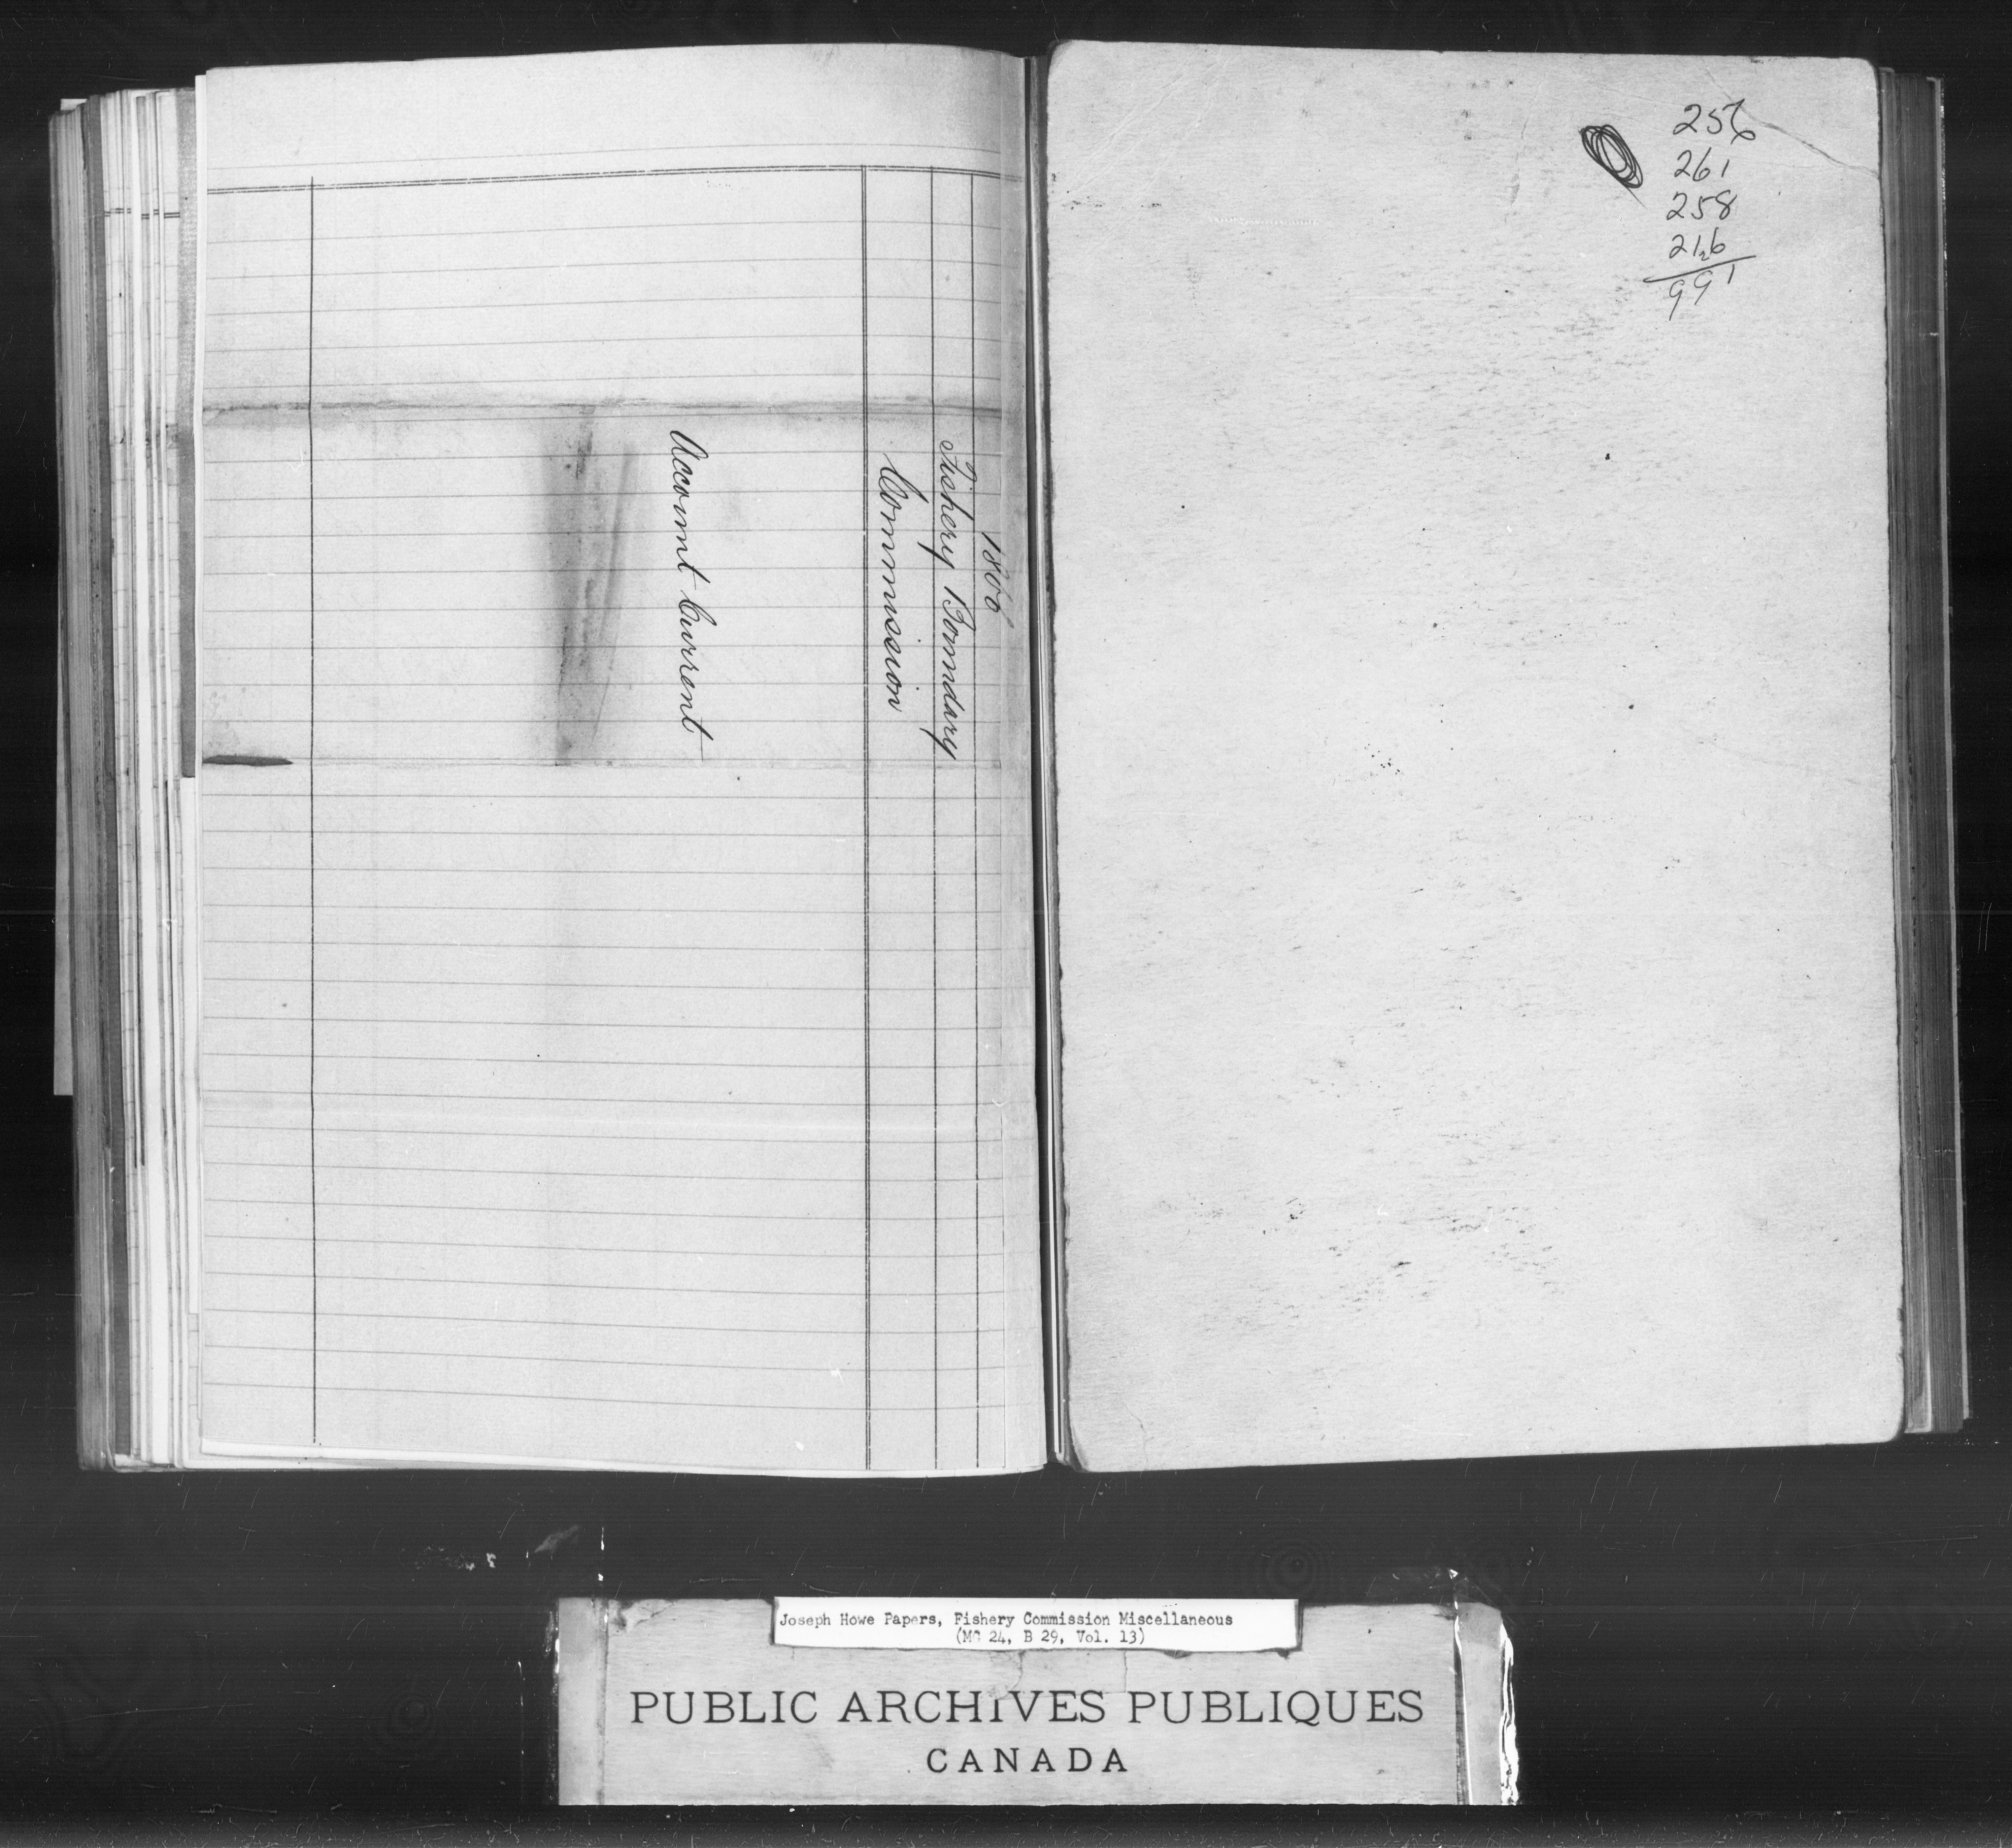 1866
Fishery Boundary
Commission
Account Current
256
261
258
216
2
991
Joseph Howe Papers, Fishery Commission Miscellaneous
(MG 24, B 29, Vol. 13)
PUBLIC ARCHIVES PUBLIQUES
CANADA